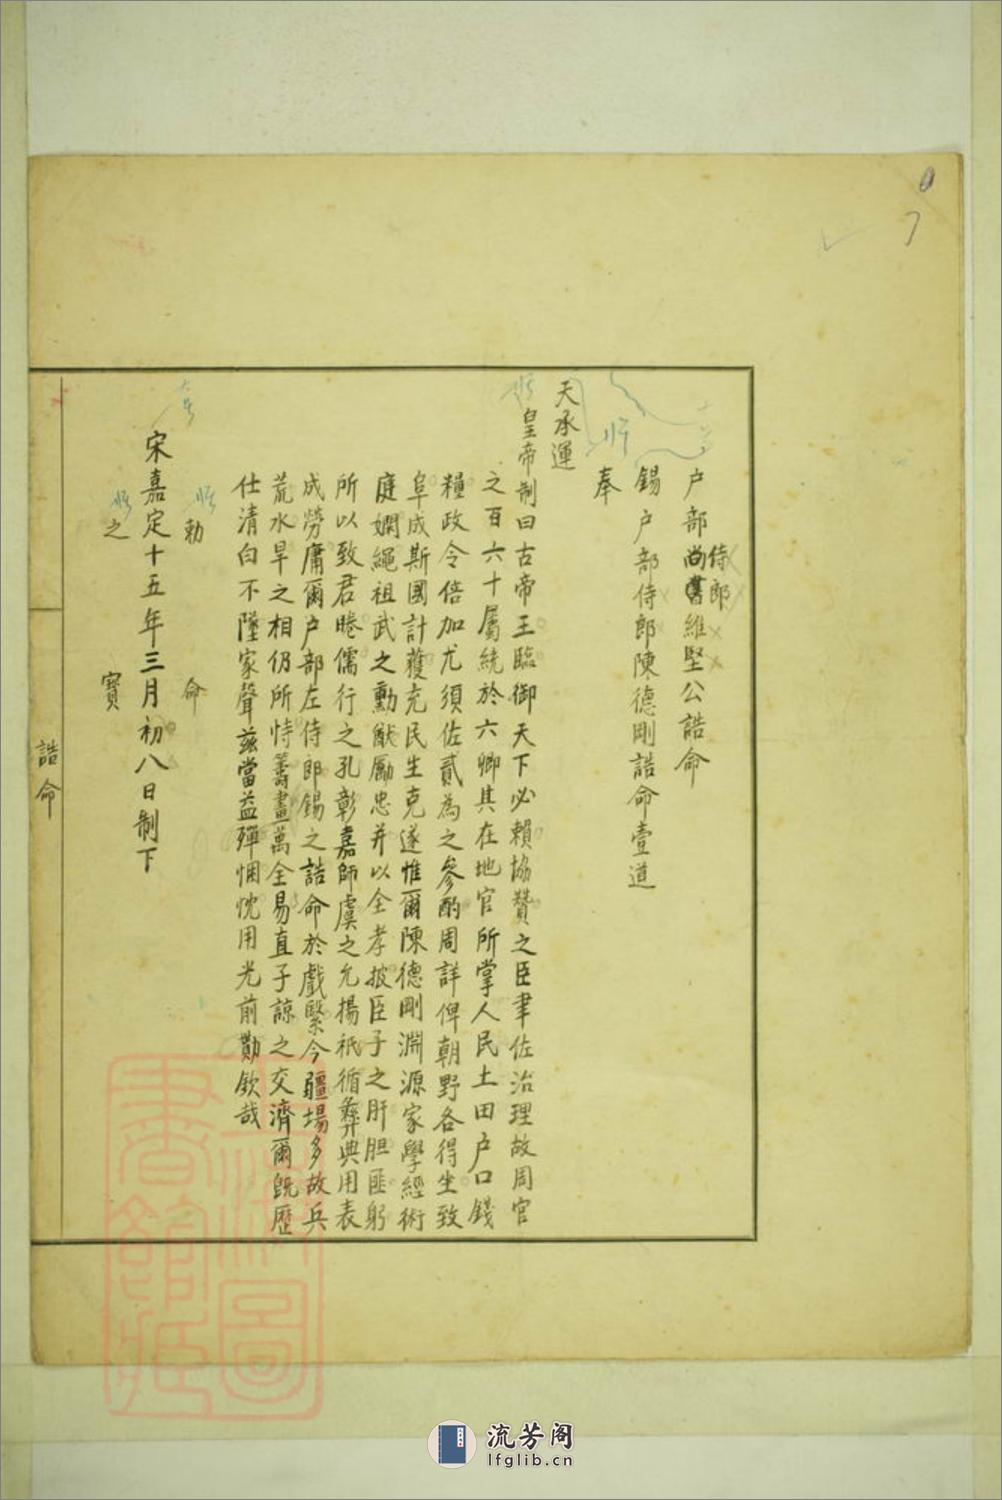 戶部尚書維堅公誥命
侍郎
錫戶部侍郎陳德剛誥命壹道
奉
天承運
皇帝制曰古帝王臨御天下必賴協贊之臣聿佐治理故周官
之百六十屬統於六卿其在地官所掌人民土田戶口錢
糧政令倍加尤須佐貳為之參酌周詳俾朝野各得坐致
阜成斯國計獲充民生克遂惟爾陳德剛淵源家學經術
庭嫻繩祖武之勳猷勵忠并以全孝披臣子之肝胆匪躬
所以致君睠儒行之孔彰嘉師虞之允揚祇循彝典用表
成勞庸爾戶部左侍郎錫之誥命於戲緊今疆場多故兵
荒水旱之相仍所恃籌畫萬全易直子諒之交濟爾既歷
仕清白不墜家聲茲當益殫悃忱用光前勛欽哉
勅 命
宋嘉定十五年三月初八日制下
之 寶
誥命
流芳阁
lfglib.cn